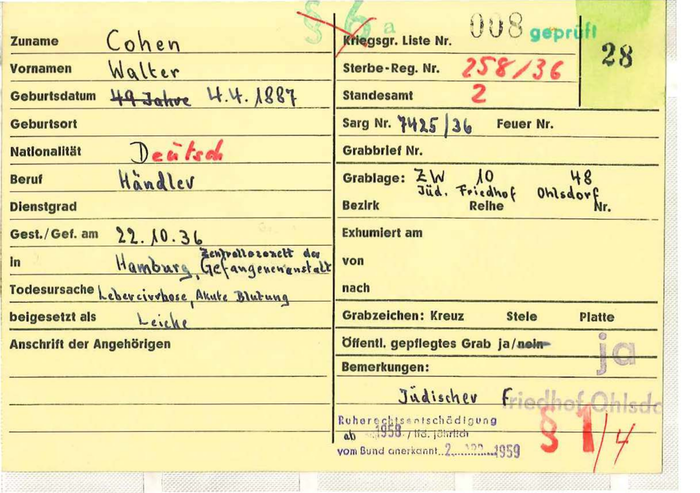 § 6 a
008 geprüft
28
Zuname Cohen
Vornamen Walter
Geburtsdatum 49 Jahre 4.4.1887
Geburtsort
Nationalität Deutsch
Beruf Händler
Dienstgrad
Gest./Gef. am 22.10.36
in Hamburg, Zentrallazarett der
Gefangenenanstalt
Todesursache Lebercirrhose, Akute Blutung
beigesetzt als Leiche
Anschrift der Angehörigen
Kriegsgr. Liste Nr.
Sterbe-Reg. Nr. 258/36
Standesamt 2
Sarg Nr. 7425/36 Feuer Nr.
Grabbrief Nr.
Grablage: ZW 10 48
Jüd. Friedhof Ohlsdorf
Bezirk Reihe Nr.
Exhumiert am
von
nach
Grabzeichen: Kreuz Stele Platte
Öffentl. gepflegtes Grab ja/nein ja
Bemerkungen:
Jüdischer F
Friedhof Ohlsdo
Ruherechtsentschädigung
ab 1958 / lfd. jährlich
vom Bund anerkannt 2. 1959
§ 1/4